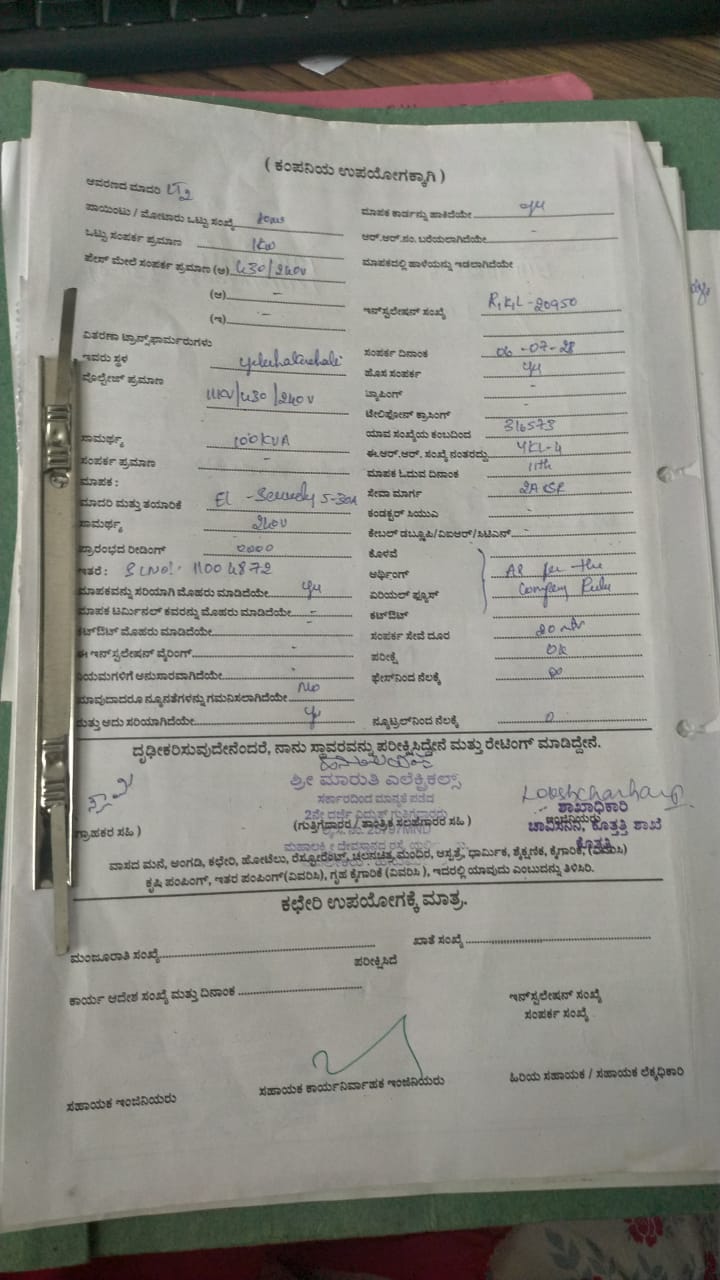 ( ಕಂಪನಿಯ ಉಪಯೋಗಕ್ಕಾಗಿ )
ಆವರಣದ ಮಾದರಿ LT2
ಪಾಯಿಂಟು / ಮೋಟಾರು ಒಟ್ಟು ಸಂಖ್ಯೆ
ಒಟ್ಟು ಸಂಪರ್ಕ ಪ್ರಮಾಣ 1KW
ಪೇಸ್ ಮೇಲೆ ಸಂಪರ್ಕ ಪ್ರಮಾಣ (ಅ) 430/240V
(ಆ) -
(ಇ) -
ವಿತರಣಾ ಟ್ರಾನ್ಸ್‌ಫಾರ್ಮರುಗಳು
ಇವರು ಸ್ಥಳ
ವೊಲ್ಟೇಜ್ ಪ್ರಮಾಣ 11KV/430/240V
ಸಾಮರ್ಥ್ಯ 100KVA
ಸಂಪರ್ಕ ಪ್ರಮಾಣ -
ಮಾಪಕ :
ಮಾದರಿ ಮತ್ತು ತಯಾರಿಕೆ EL 5-30A
ಸಾಮರ್ಥ್ಯ 240V
ಪ್ರಾರಂಭದ ರೀಡಿಂಗ್ 0000
ಇತರೆ : SLNO: 11004872
ಮಾಪಕವನ್ನು ಸರಿಯಾಗಿ ಮೊಹರು ಮಾಡಿದೆಯೇ yes
ಮಾಪಕ ಟರ್ಮಿನಲ್ ಕವರನ್ನು ಮೊಹರು ಮಾಡಿದೆಯೇ -
ಕಟ್‌ಔಟ್ ಮೊಹರು ಮಾಡಿದೆಯೇ -
ಈ ಇನ್‌ಸ್ಟಲೇಷನ್ ವೈರಿಂಗ್ -
ನಿಯಮಗಳಿಗೆ ಅನುಸಾರವಾಗಿದೆಯೇ -
ಯಾವುದಾದರೂ ನ್ಯೂನತೆಗಳನ್ನು ಗಮನಿಸಲಾಗಿದೆಯೇ No
ಮತ್ತು ಅದು ಸರಿಯಾಗಿದೆಯೇ
ಮಾಪಕ ಕಾರ್ಡನ್ನು ಹಾಕಿದೆಯೇ yes
ಆರ್.ಆರ್.ನಂ. ಬರೆಯಲಾಗಿದೆಯೇ -
ಮಾಪಕದಲ್ಲಿ ಹಾಳೆಯನ್ನು ಇಡಲಾಗಿದೆಯೇ
ಇನ್‌ಸ್ಟಲೇಷನ್ ಸಂಖ್ಯೆ 20950
ಸಂಪರ್ಕ ದಿನಾಂಕ 06-07-28
ಹೊಸ ಸಂಪರ್ಕ yes
ಟ್ಯಾಪಿಂಗ್ -
ಟೆಲಿಫೋನ್ ಕ್ರಾಸಿಂಗ್ -
ಯಾವ ಸಂಖ್ಯೆಯ ಕಂಬದಿಂದ 316573
ಈ.ಆರ್.ಆರ್. ಸಂಖ್ಯೆ ನಂತರದ್ದು YKL-4
ಮಾಪಕ ಓದುವ ದಿನಾಂಕ 11th
ಸೇವಾ ಮಾರ್ಗ
ಕಂಡಕ್ಟರ್ ಸಿಯುಎ -
ಕೇಬಲ್ ಡಬ್ಲೂಪಿ/ಎಐಆರ್/ಸಿಟಿಎನ್ -
ಕೊಳವೆ
ಅರ್ಥಿಂಗ್ As per the
ಎರಿಯಲ್ ಫ್ಯೂಸ್ Company Rule
ಕಟ್‌ಔಟ್
ಸಂಪರ್ಕ ಸೇವೆ ದೂರ
ಪರೀಕ್ಷೆ OK
ಫೇಸ್‌ನಿಂದ ನೆಲಕ್ಕೆ
ನ್ಯೂಟ್ರಲ್‌ನಿಂದ ನೆಲಕ್ಕೆ 0
ದೃಢೀಕರಿಸುವುದೇನೆಂದರೆ, ನಾನು ಸ್ಥಾವರವನ್ನು ಪರೀಕ್ಷಿಸಿದ್ದೇನೆ ಮತ್ತು ರೇಟಿಂಗ್ ಮಾಡಿದ್ದೇನೆ.
ಶ್ರೀ ಮಾರುತಿ ಎಲೆಕ್ಟ್ರಿಕಲ್ಸ್
ಸರ್ಕಾರದಿಂದ ಮಾನ್ಯತೆ ಪಡೆದ
2ನೇ ದರ್ಜೆ ವಿದ್ಯುತ್ ಗುತ್ತಿಗೆದಾರರು
ಶಾಖಾಧಿಕಾರಿ
ಚಾವಿಸನಿನಿ, ಕೊತ್ತತ್ತಿ ಶಾಖೆ
ಕೊತ್ತತ್ತಿ
ಗ್ರಾಹಕರ ಸಹಿ )
(ಗುತ್ತಿಗೆದಾರರ / ತಾಂತ್ರಿಕ ಸಲಹೆಗಾರರ ಸಹಿ )
ವಾಸದ ಮನೆ, ಅಂಗಡಿ, ಕಛೇರಿ, ಹೋಟೆಲು, ರೆಸ್ಟೋರೆಂಟ್, ಚಲನಚಿತ್ರ ಮಂದಿರ, ಆಸ್ಪತ್ರೆ, ಧಾರ್ಮಿಕ, ಶೈಕ್ಷಣಿಕ, ಕೈಗಾರಿಕೆ, (ವಿವರಿಸಿ)
ಕೃಷಿ ಪಂಪಿಂಗ್, ಇತರ ಪಂಪಿಂಗ್(ವಿವರಿಸಿ), ಗೃಹ ಕೈಗಾರಿಕೆ (ವಿವರಿಸಿ ), ಇದರಲ್ಲಿ ಯಾವುದು ಎಂಬುದನ್ನು ತಿಳಿಸಿರಿ.
ಕಛೇರಿ ಉಪಯೋಗಕ್ಕೆ ಮಾತ್ರ.
ಮಂಜೂರಾತಿ ಸಂಖ್ಯೆ
ಖಾತೆ ಸಂಖ್ಯೆ
ಪರೀಕ್ಷಿಸಿದೆ
ಕಾರ್ಯ ಆದೇಶ ಸಂಖ್ಯೆ ಮತ್ತು ದಿನಾಂಕ
ಇನ್‌ಸ್ಟಲೇಷನ್ ಸಂಖ್ಯೆ
ಸಂಪರ್ಕ ಸಂಖ್ಯೆ
ಸಹಾಯಕ ಇಂಜಿನಿಯರು
ಸಹಾಯಕ ಕಾರ್ಯನಿರ್ವಾಹಕ ಇಂಜಿನಿಯರು
ಹಿರಿಯ ಸಹಾಯಕ / ಸಹಾಯಕ ಲೆಕ್ಕಧಿಕಾರಿ